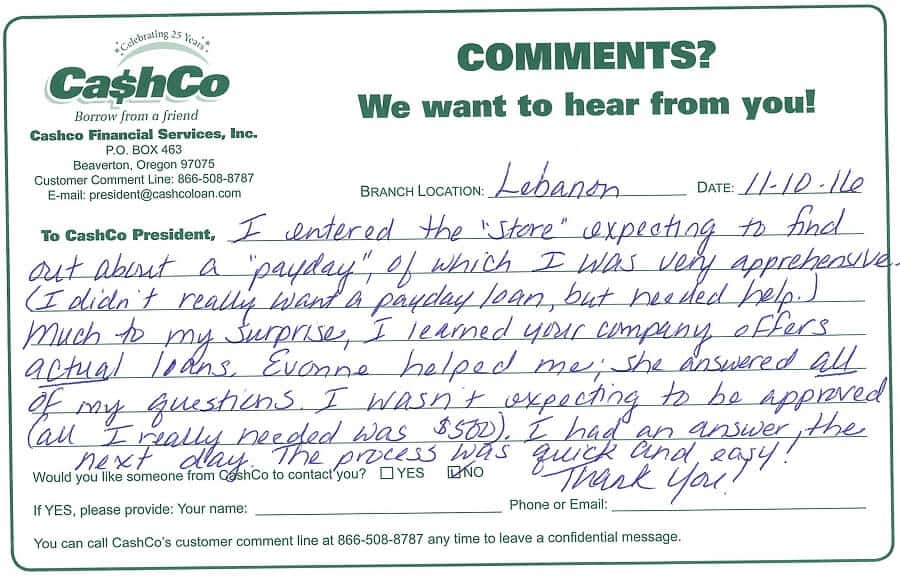 Celebrating 25 Years
Ca$hCo
Borrow from a friend
Cashco Financial Services, Inc.
P.O. BOX 463
Beaverton, Oregon 97075
Customer Comment Line: 866-508-8787
E-mail: president@cashcoloan.com
COMMENTS?
We want to hear from you!
BRANCH LOCATION: Lebanon DATE: 11-10-16
To CashCo President, I entered the "store" expecting to find
out about a "payday", of which I was very apprehensive.
(I didn't really want a payday loan, but needed help.)
Much to my surprise, I learned your company offers
actual loans. Evonne helped me; she answered all
of my questions. I wasn't expecting to be approved
(all I really needed was $500). I had an answer the
next day. The process was quick and easy!
Thank You!
Would you like someone from CashCo to contact you? YES NO
If YES, please provide: Your name: Phone or Email:
You can call CashCo's customer comment line at 866-508-8787 any time to leave a confidential message.